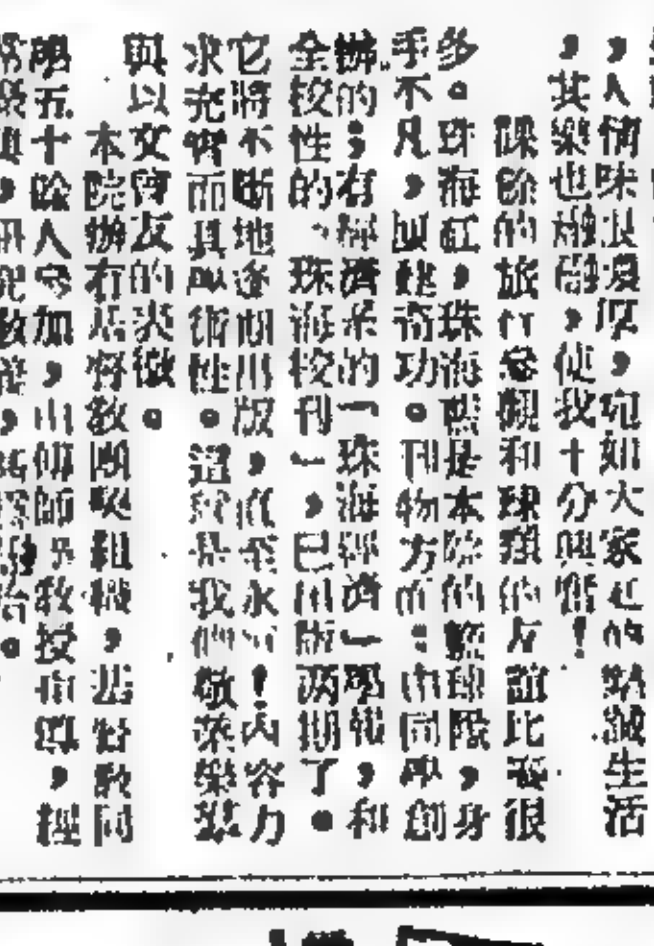 ，人情味很濃厚，宛如大家庭的熱誠生活
，其樂也融融，使我十分興奮！
課餘的旅行參觀和球類的友誼比賽很
多。珠海紅，珠海藍是本院的籃球隊，身
手不凡，屢建奇功。刊物方面：由同學創
辦的；有經濟系的「珠海經濟」學報，和
全校性的「珠海校刊」，已出版两期了。
它將不斷地逐期出版，直至永
！內容力
求充實而具學術性。這就是我們敬業樂羣
與以文會友的
。
本院辦有基督教團契組織，基督教同
學五十餘人參加，由
師
教授
導，經